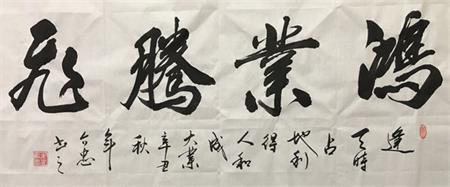 鴻業騰飛
逢天时占地利得人和成大業辛丑秋年忠书之